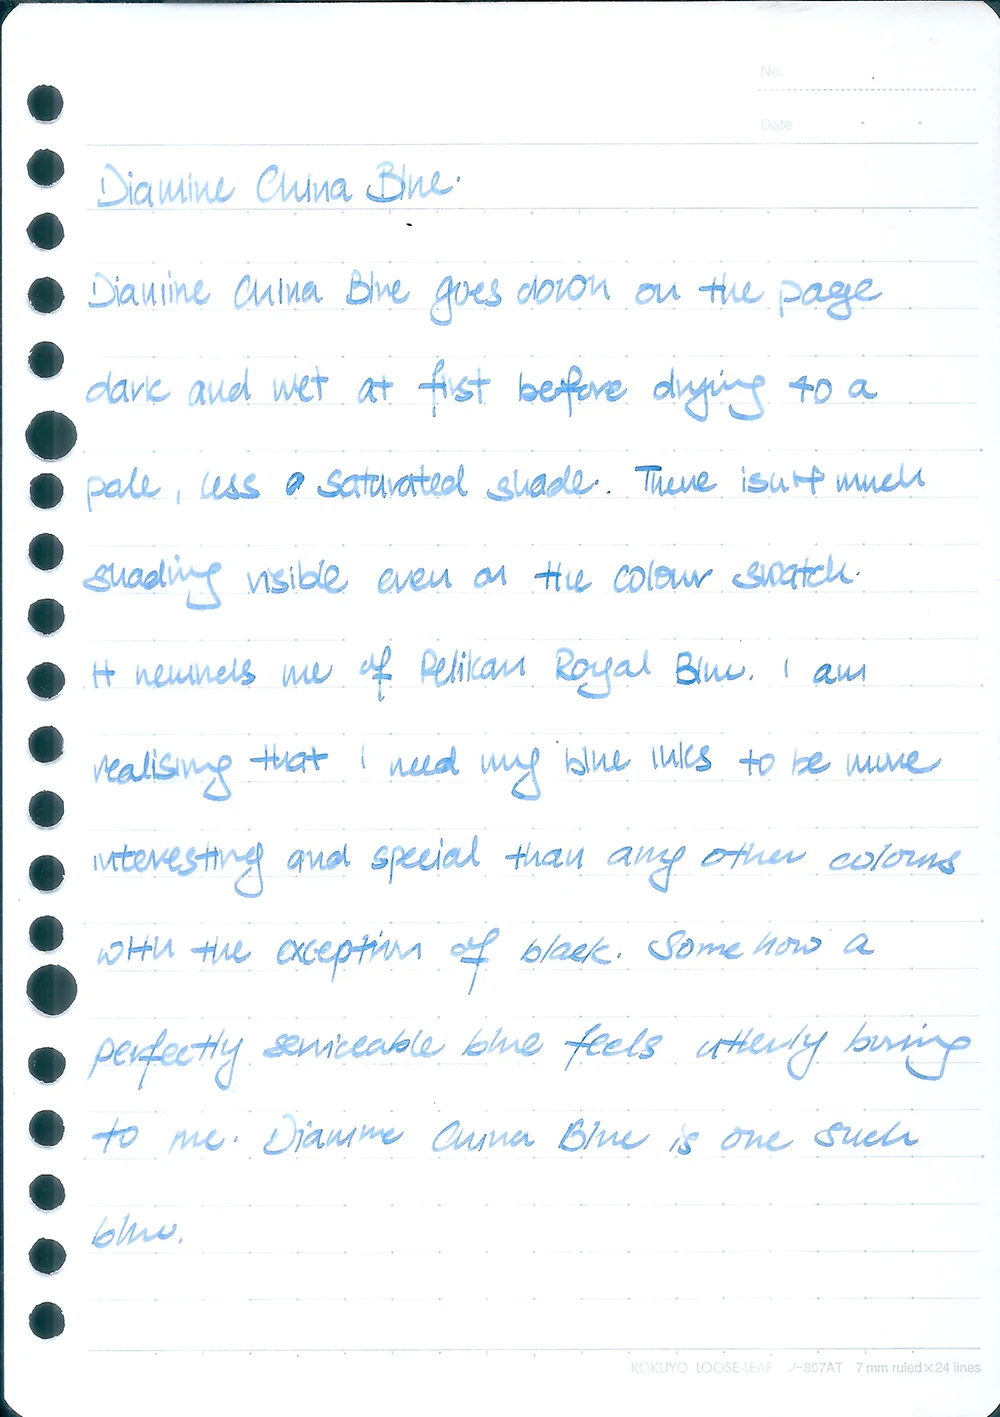 No.
Date
Diamine China Blue.
Diamine China Blue goes down on the page
dark and wet at first before drying to a
pale, less a saturated shade. There isn't much
shading visible even on the colour swatch.
It reminds me of Pelikan Royal Blue. I am
realising that I need my blue inks to be more
interesting and special than any other colours
with the exception of black. Somehow a
perfectly serviceable blue feels utterly boring
to me. Diamine China Blue is one such
blue.
KOKUYO LOOSE-LEAF ノ-807AT 7 mm ruled×24 lines